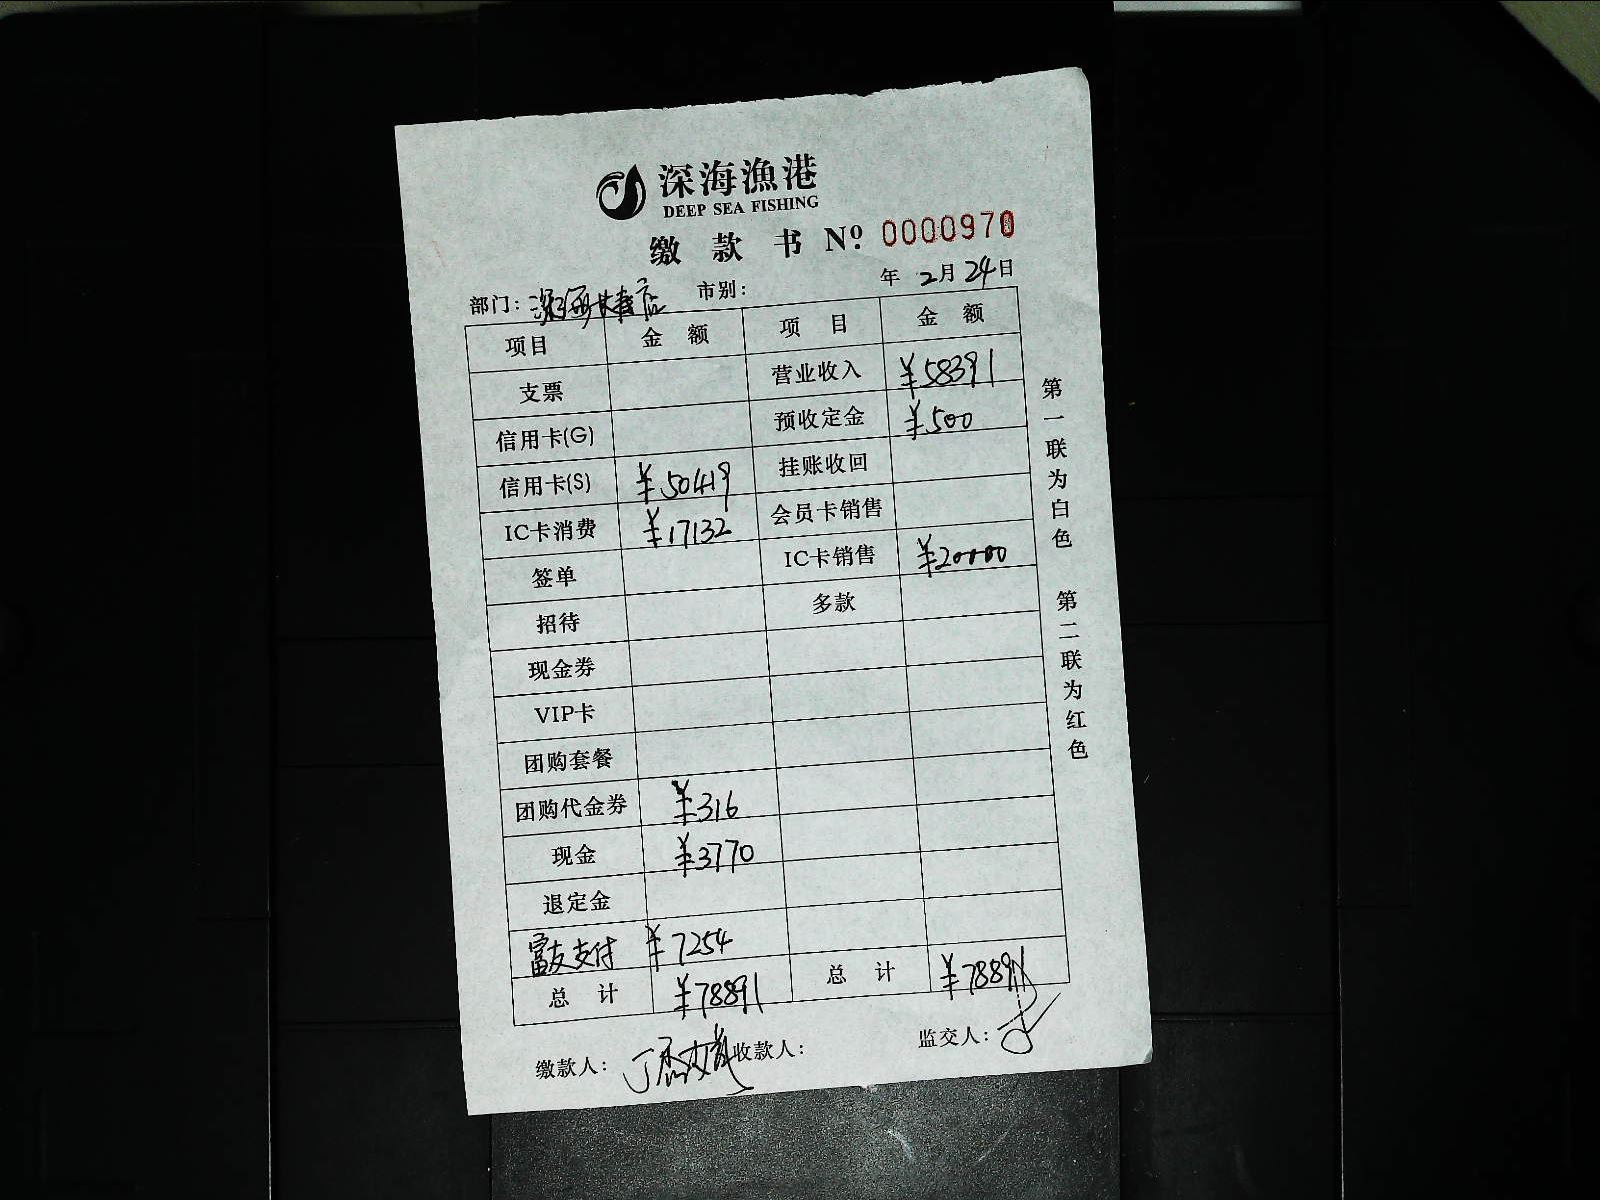 深海漁港
DEEP SEA FISHING
缴款书 Nº. 0000970
部门: 市别: 年 2月24日
项目 金额 项目 金额
支票 营业收入 ¥58391
信用卡(G) 预收定金 ¥500
信用卡(S) ¥50419 挂账收回
IC卡消费 ¥17132 会员卡销售
签单 IC卡销售 ¥20000
招待 多款
现金券
VIP卡
团购套餐
团购代金券 ¥316
现金 ¥3770
退定金
富友支付 ¥7254
总计 ¥78891 总计 ¥78891
缴款人: 收款人: 监交人:
第一联为白色 第二联为红色